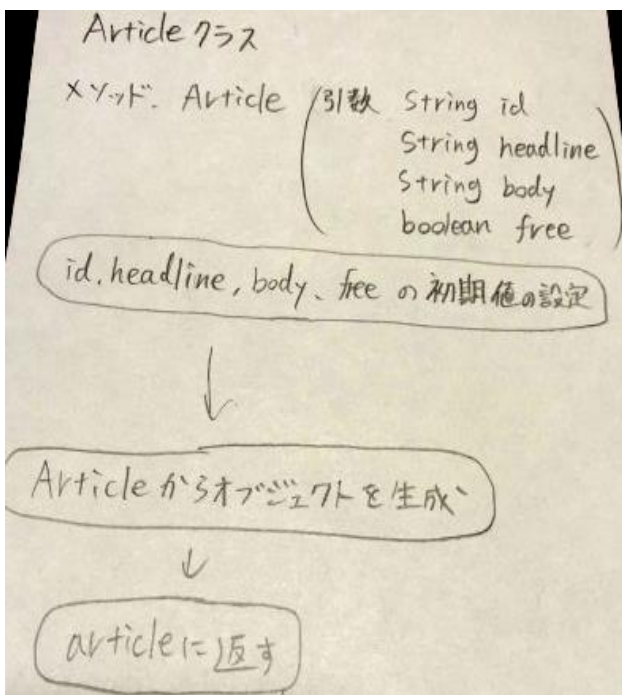 Articleクラス
メソッド. Article (引数 String id
String headline
String body
boolean free)
id, headline, body、free の初期値の設定
↓
Articleからオブジェクトを生成
↓
articleに返す